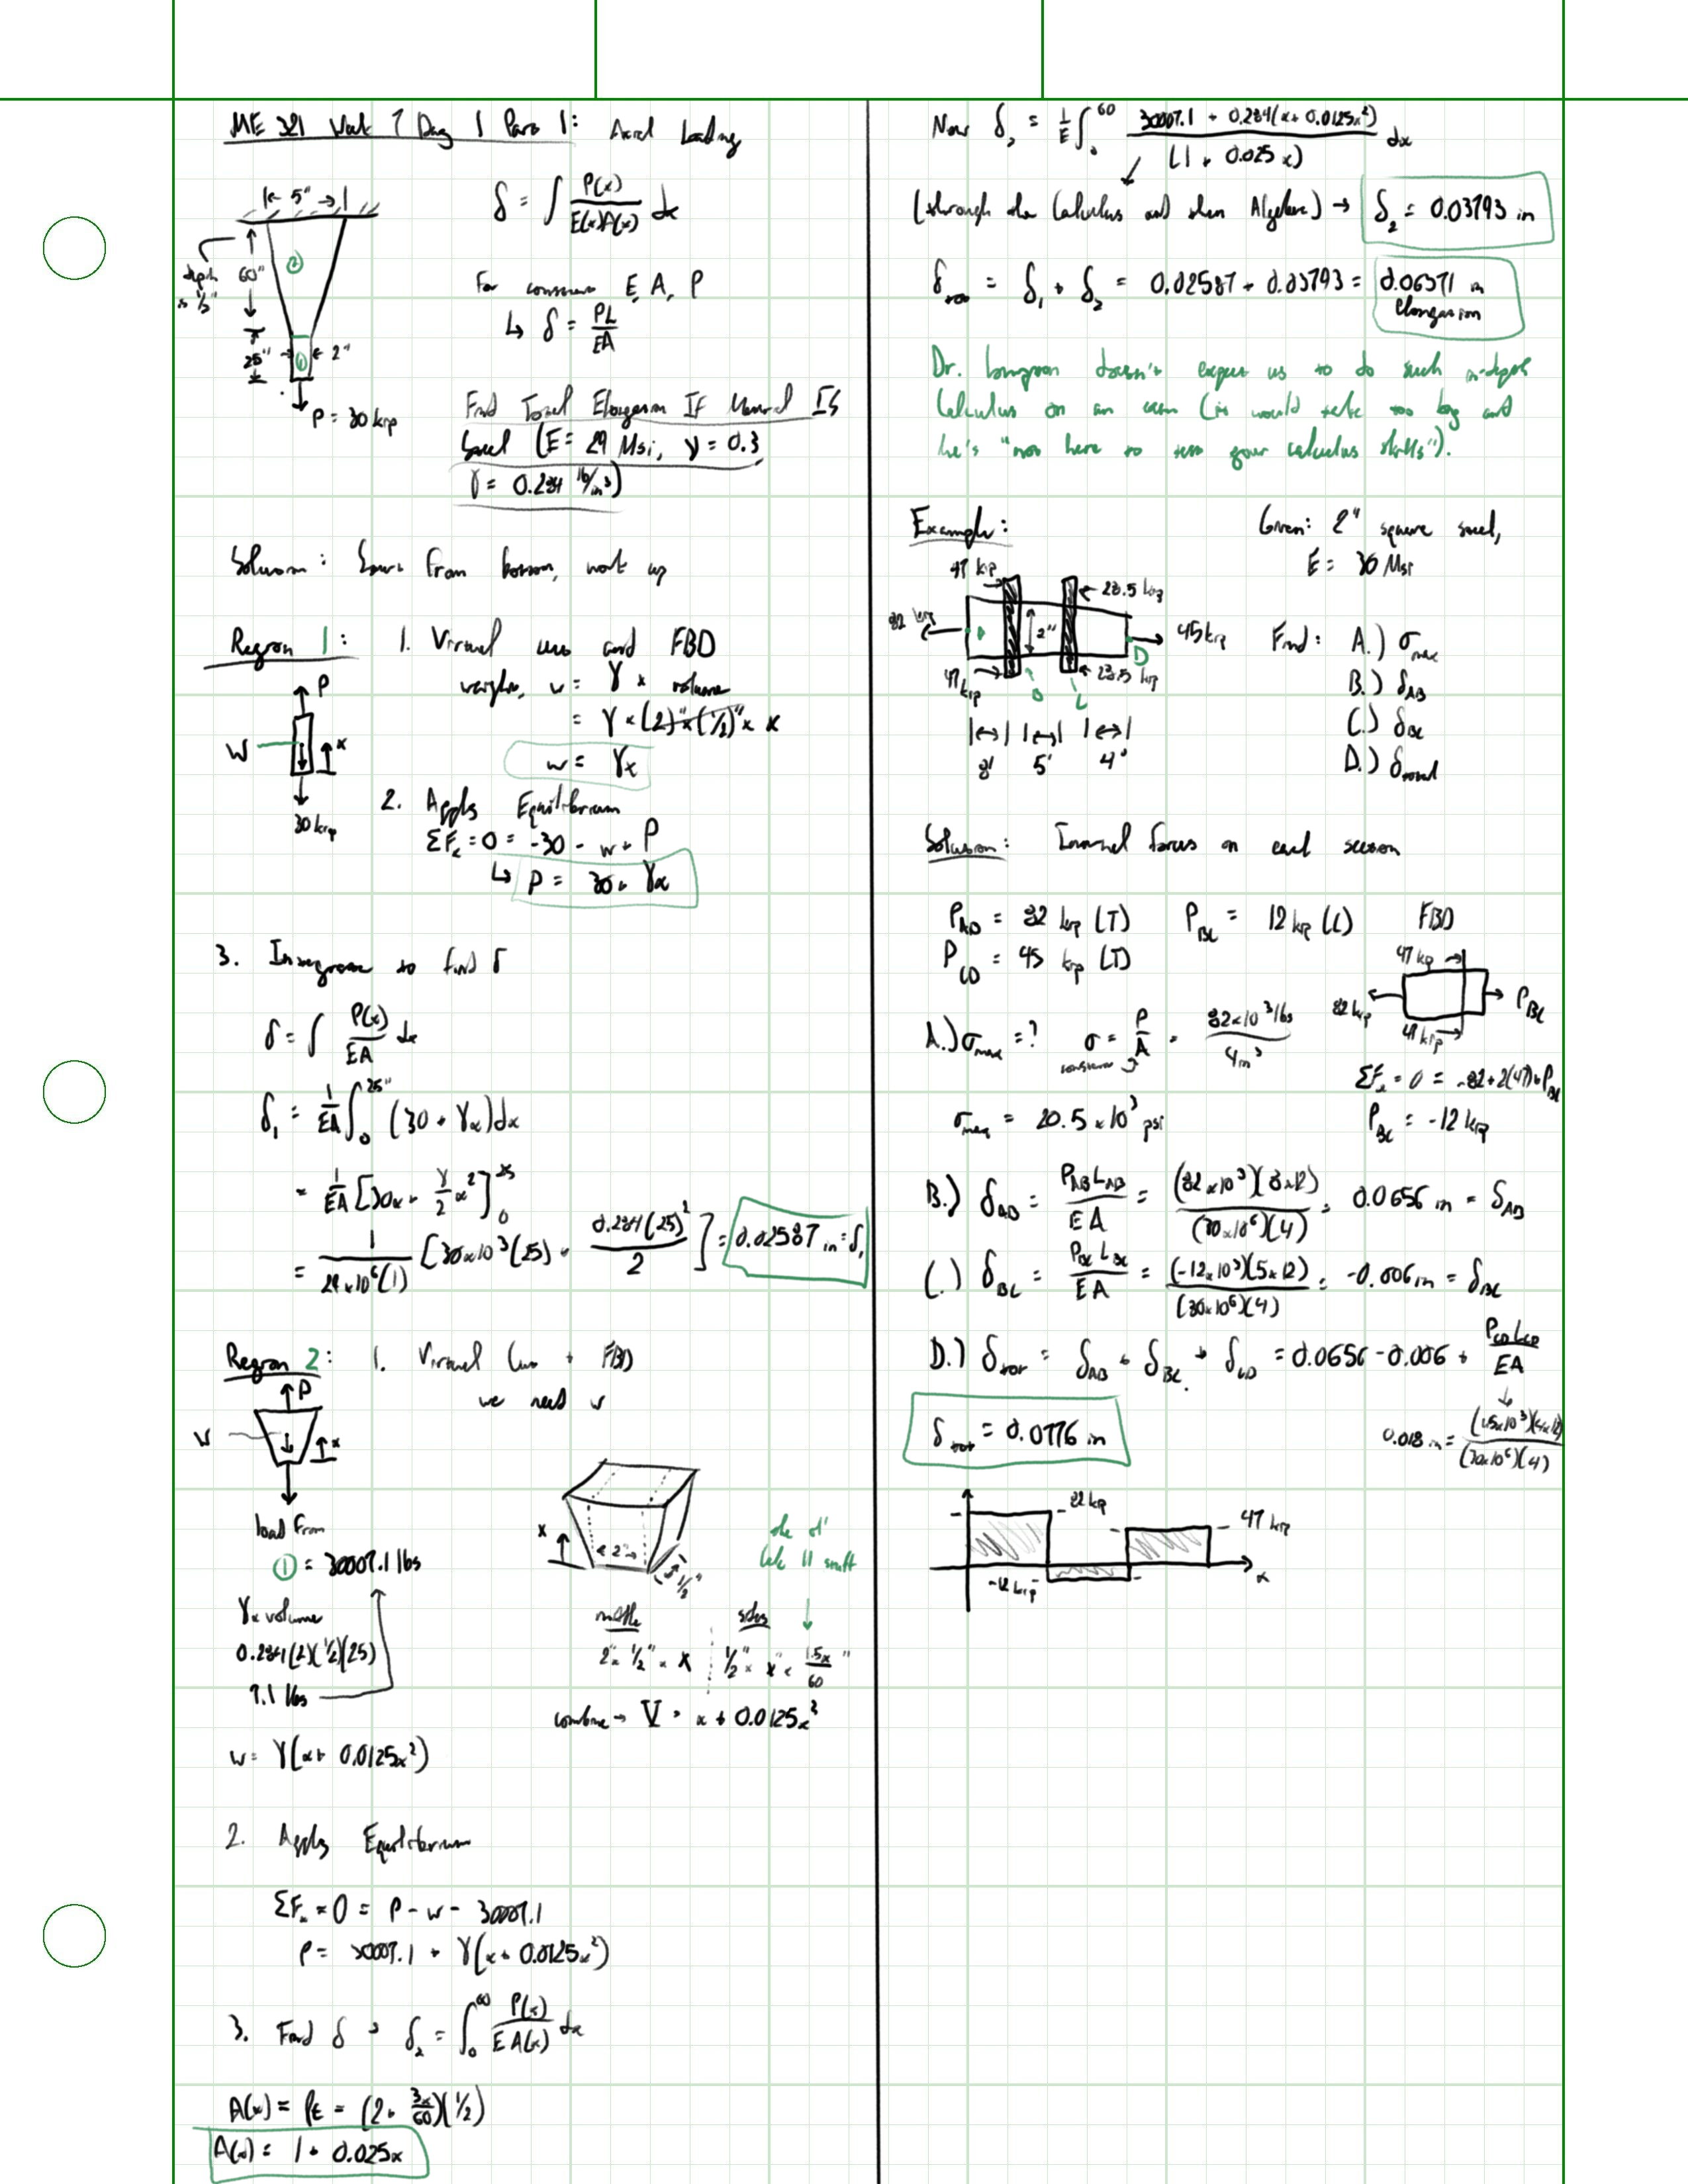 ME 321 Week 7 Day 1 Part 1: Axial Loading
|← 5" →|
δ = ∫ P(x)/E(x)A(x) dx
depth is 1/2"
60"
②
For constant E, A, P
↳ δ = PL/EA
25"
①
← 2"
P = 30 kip
Find Total Elongation If Material Is
Steel (E = 29 Msi, ν = 0.3
γ = 0.284 lb/in³)
Solution: Start from bottom, work up
Region 1: 1. Virtual cuts and FBD
weight, w = γ × volume
= γ × (2)" × (1/2)" × x
w = γx
P
W
x
30 kip
2. Apply Equilibrium
ΣFx = 0 = -30 - w + P
↳ P = 30 + γx
3. Integrate to find δ
δ = ∫ P(x)/EA dx
δ₁ = 1/EA ∫₀^25" (30 + γx)dx
= 1/EA [30x + γ/2 x²]₀^25
= 1/29×10⁶(1) [30×10³(25) + 0.284(25)²/2] = 0.02587 in = δ₁
Region 2: 1. Virtual Cut + FBD
we need w
P
W
x
load from
① = 30007.1 lbs
γ × volume
0.284(2)(1/2)(25)
7.1 lbs
x
← 2" →
1/2"
the d'
calc 11 stuff
middle
sides
2" × 1/2" × x
1/2" × x" × 1.5x/60 "
combine → V = x + 0.0125x²
w = γ(x + 0.0125x²)
2. Apply Equilibrium
ΣFx = 0 = P - w - 30007.1
P = 30007.1 + γ(x + 0.0125x²)
3. Find δ → δ₂ = ∫₀^60 P(x)/E A(x) dx
A(x) = (2 + 3x/60)(1/2)
A(x) = 1 + 0.025x
Now δ₂ = 1/E ∫₀^60 30007.1 + 0.284(x + 0.0125x²)/(1 + 0.025x) dx
(through the Calculus and then Algebra) → δ₂ = 0.03793 in
δtot = δ₁ + δ₂ = 0.02587 + 0.03793 = 0.06371 in
Elongation
Dr. doesn't expect us to do such in-depth
Calculus on an exam (it would take too long and
he's "not here to test your calculus skills").
Example:
Given: 2" square steel,
E = 30 Msi
47 kip
23.5 kip
82 kip
A
2"
45 kip
D
47 kip
B
C
23.5 kip
|↔| |↔| |↔|
8' 5' 4'
Find: A.) σmax
B.) δAB
C.) δBC
D.) δtotal
Solution: Internal forces on each section
PAB = 82 kip (T) PBC = 12 kip (C) FBD
PCD = 45 kip (T)
47 kip
82 kip
PBC
47 kip
A.) σmax = ? σ = P/A = 82×10³ lbs/4 in²
constant
ΣFx = 0 = -82 + 2(47) + PBC
σmax = 20.5 × 10³ psi
PBC = -12 kip
B.) δAB = PAB LAB/EA = (82×10³)(8×12)/(30×10⁶)(4) = 0.0656 in = δAB
C.) δBC = PBC LBC/EA = (-12×10³)(5×12)/(30×10⁶)(4) = -0.006 in = δBC
D.) δtot = δAB + δBC + δCD = 0.0656 - 0.006 + PCD LCD/EA
δtot = 0.0776 in
0.018 in = (45×10³)(4×12)/(30×10⁶)(4)
82 kip
47 kip
-12 kip
x